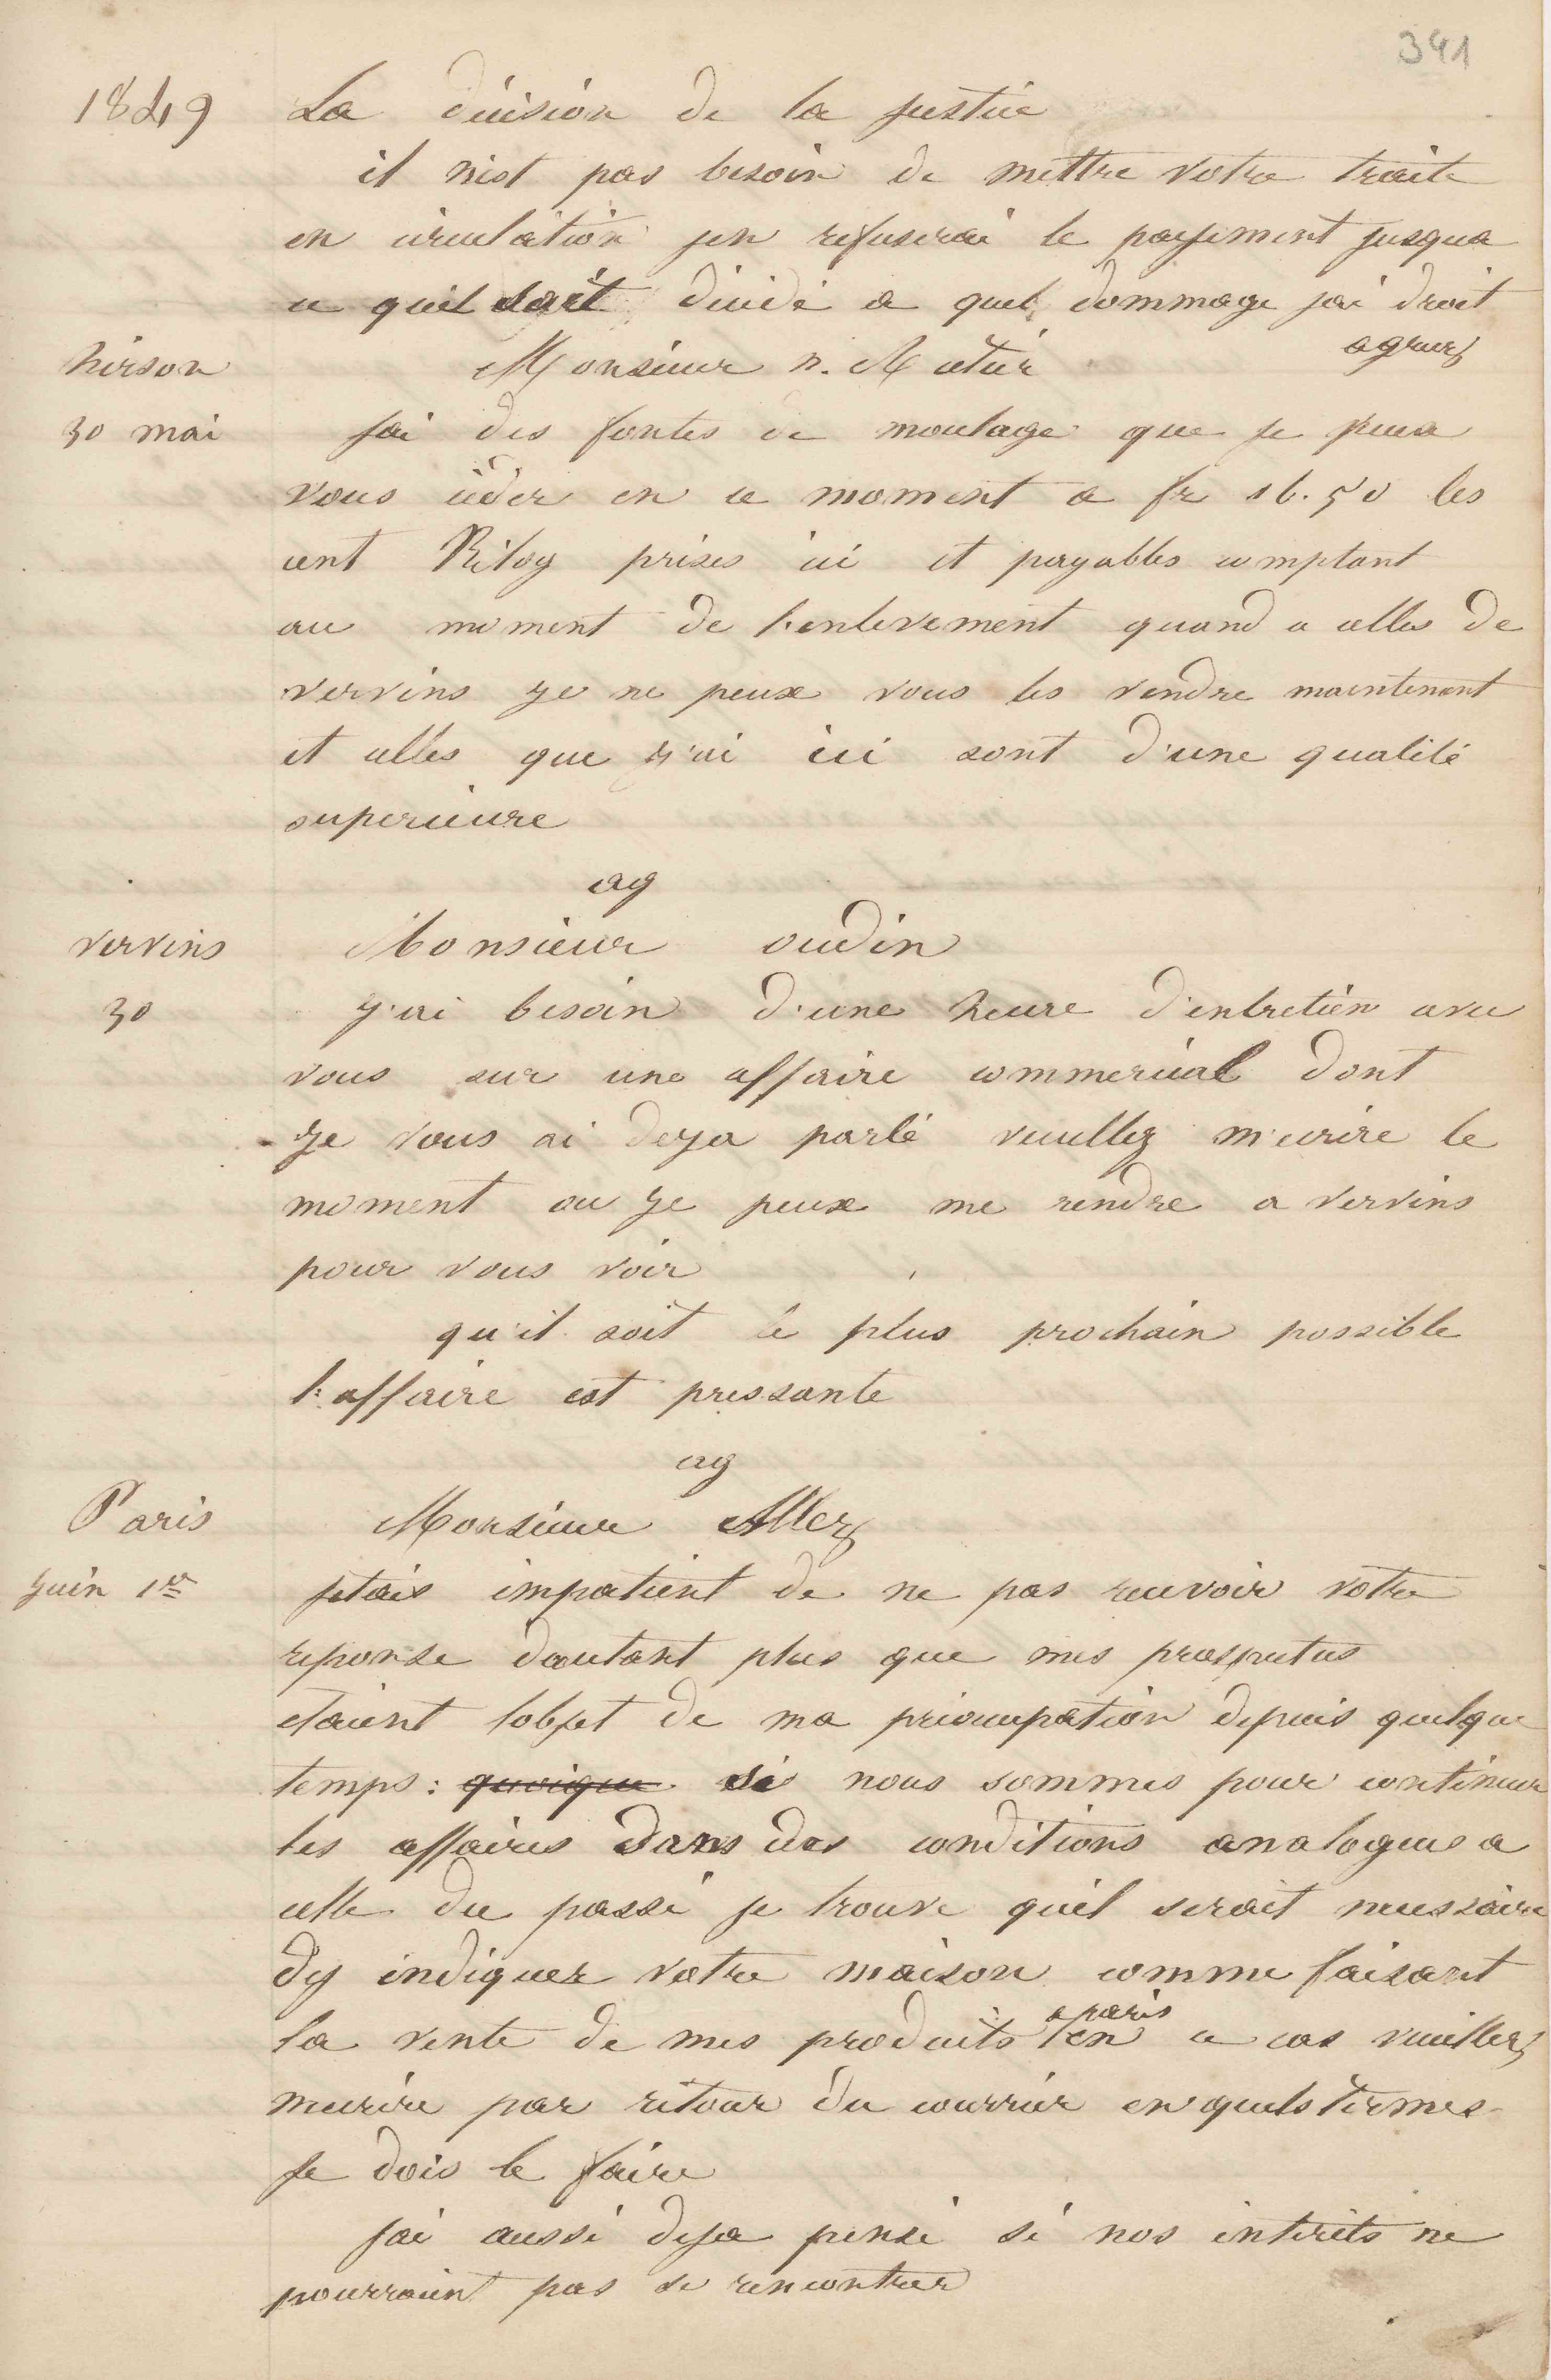 341
1849 La décision de la justice
il nest pas besoin de mettre votre traite
en circulation jen refuserai le payement jusqua
ce quil soit décidé a quel dommage jai droit
agreez
hirson Monsieur n.
30 mai jai des fontes de moulage que je peux
vous céder en ce moment a fr 16.50 les
cent Kilog prises ici et payables comptant
au moment de l'enlevement quand a celles de
vervins je ne peux vous les vendre maintenant
et celles que j'ai ici sont d'une qualité
superieure
ag
vervins Monsieur oudin
30 j'ai besoin d'une heure d'entretien avec
vous sur une affaire commercial dont
je vous ai deja parlé veuillez m'ecrire le
moment ou je peux me rendre a vervins
pour vous voir
qu'il soit le plus prochain possible
l'affaire est pressante
ag
Paris Monsieur Allez
juin 1er jetais impatient de ne pas recevoir votre
reponse dautant plus que mes prospectus
etaient lobjet de ma préocupation depuis quelque
temps : quoique si nous sommes pour continuer
les affaires dans des conditions analogues a
celle du passé je trouve quil serait necessaire
dy indiquer votre maison comme faisant
la vente de mes produits a paris en ce cas veuillez
mecrire par retour du courrier en quels termes
je dois le faire
jai aussi deja pensé si nos intérêts ne
pourraient pas se rencontrer